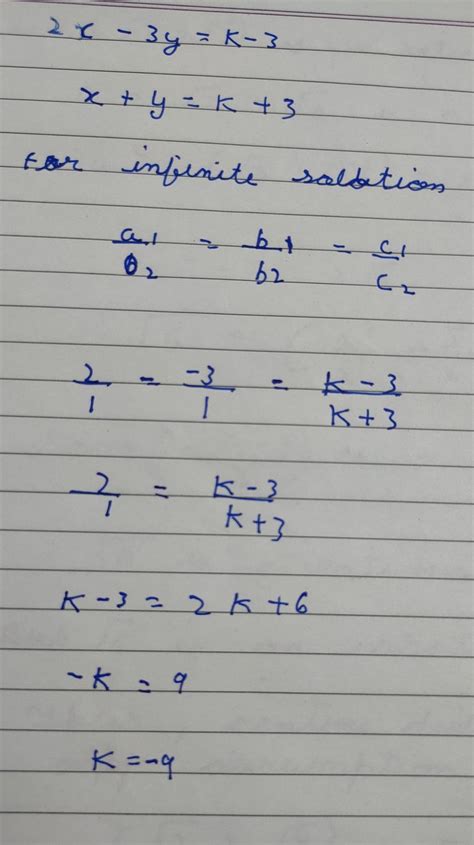 2x - 3y = K - 3
x + y = K + 3
For infinite solution
a1/a2 = b1/b2 = c1/c2
2/1 = -3/1 = K - 3/K + 3
2/1 = K - 3/K + 3
K - 3 = 2K + 6
-K = 9
K = -9